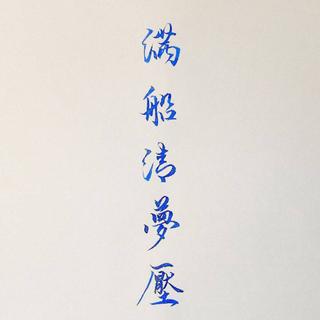 満船清夢壓